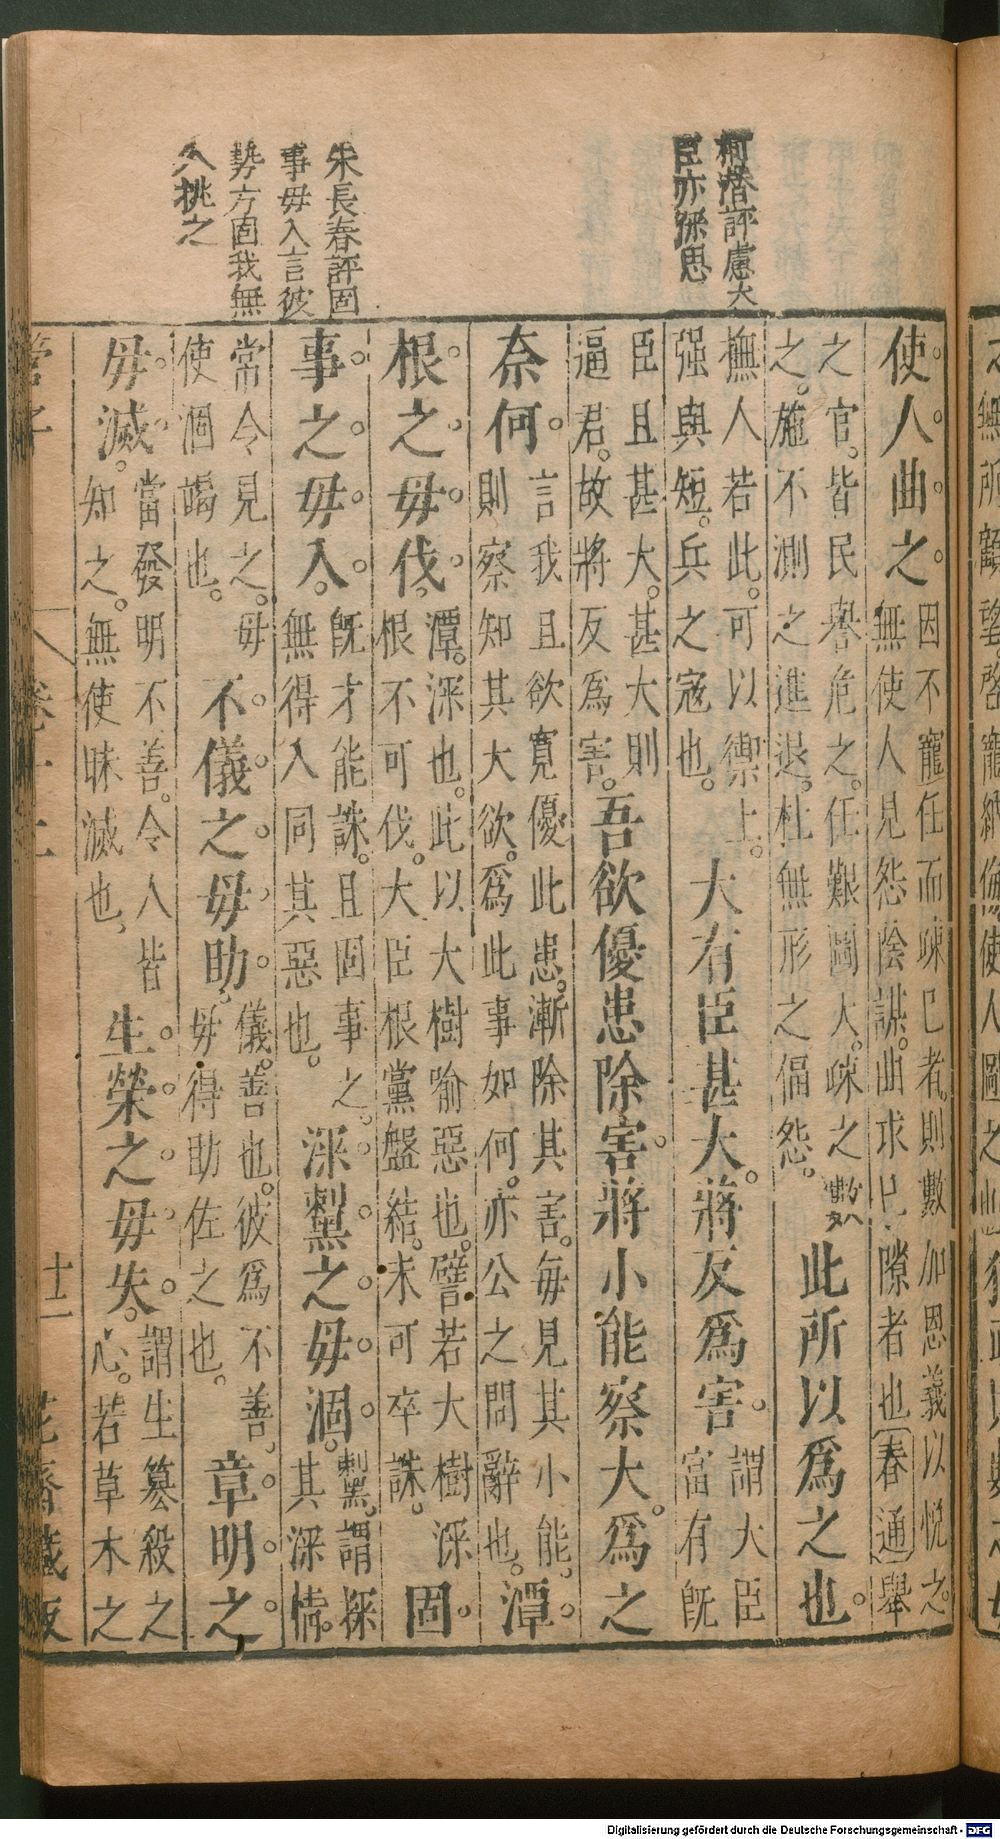 柯潛評慮大
臣亦深思
朱長春評固
事毋入言彼
勢方固我無
入挑之
使人曲之。因不寵任而疎已者。則數加恩義以悅之。
無使人見怨陰謀。曲求已隙者也春通舉
之官。皆民譽危之。任艱圖大。疎之
之。施不測之進退。杜無形之偪怨。此所以爲之也。
撫人若此。可以禦上。
强與短。兵之寇也。大有臣甚大。將反爲害。謂大臣
富有旣
臣且甚大。甚大則
逼君。故將反爲害。吾欲優患除害。將小能察大。爲之
奈何。言我且欲寬優此患。漸除其害。每見其小能。
則察知其大欲。爲此事如何。亦公之問辭也。潭
根之毋伐。潭。深也。此以大樹喻惡也。譬若大樹深
根不可伐。大臣根黨盤結。未可卒誅。固
事之毋入。旣才能誅。且固事之。
無得入同其惡也。深䵑之毋涸。䵑。謂探
其深情。
常令見之。毋
使涸竭也。不儀之毋助。儀。善也。彼爲不善。
毋得助佐之也。章明之
毋滅。當發明不善。令人皆
知之。無使昧滅也。生榮之毋失。謂生簒殺之
心。若草木之
管子 卷十二 花齋藏板
Digitalisierung gefördert durch die Deutsche Forschungsgemeinschaft - DFG